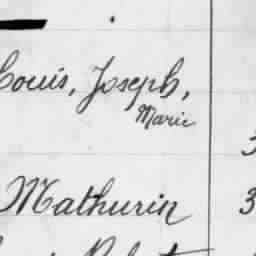 Louis, Joseph,
Marie
3
Mathurin 3